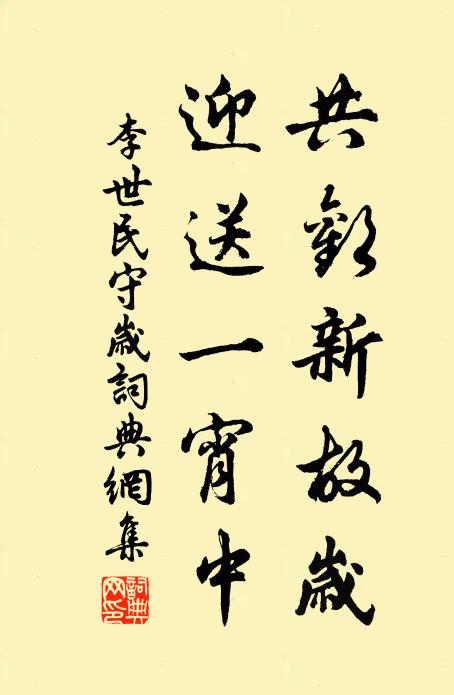 共歡新故歲
迎送一宵中
李世民守歲詞典網集
詞典网印